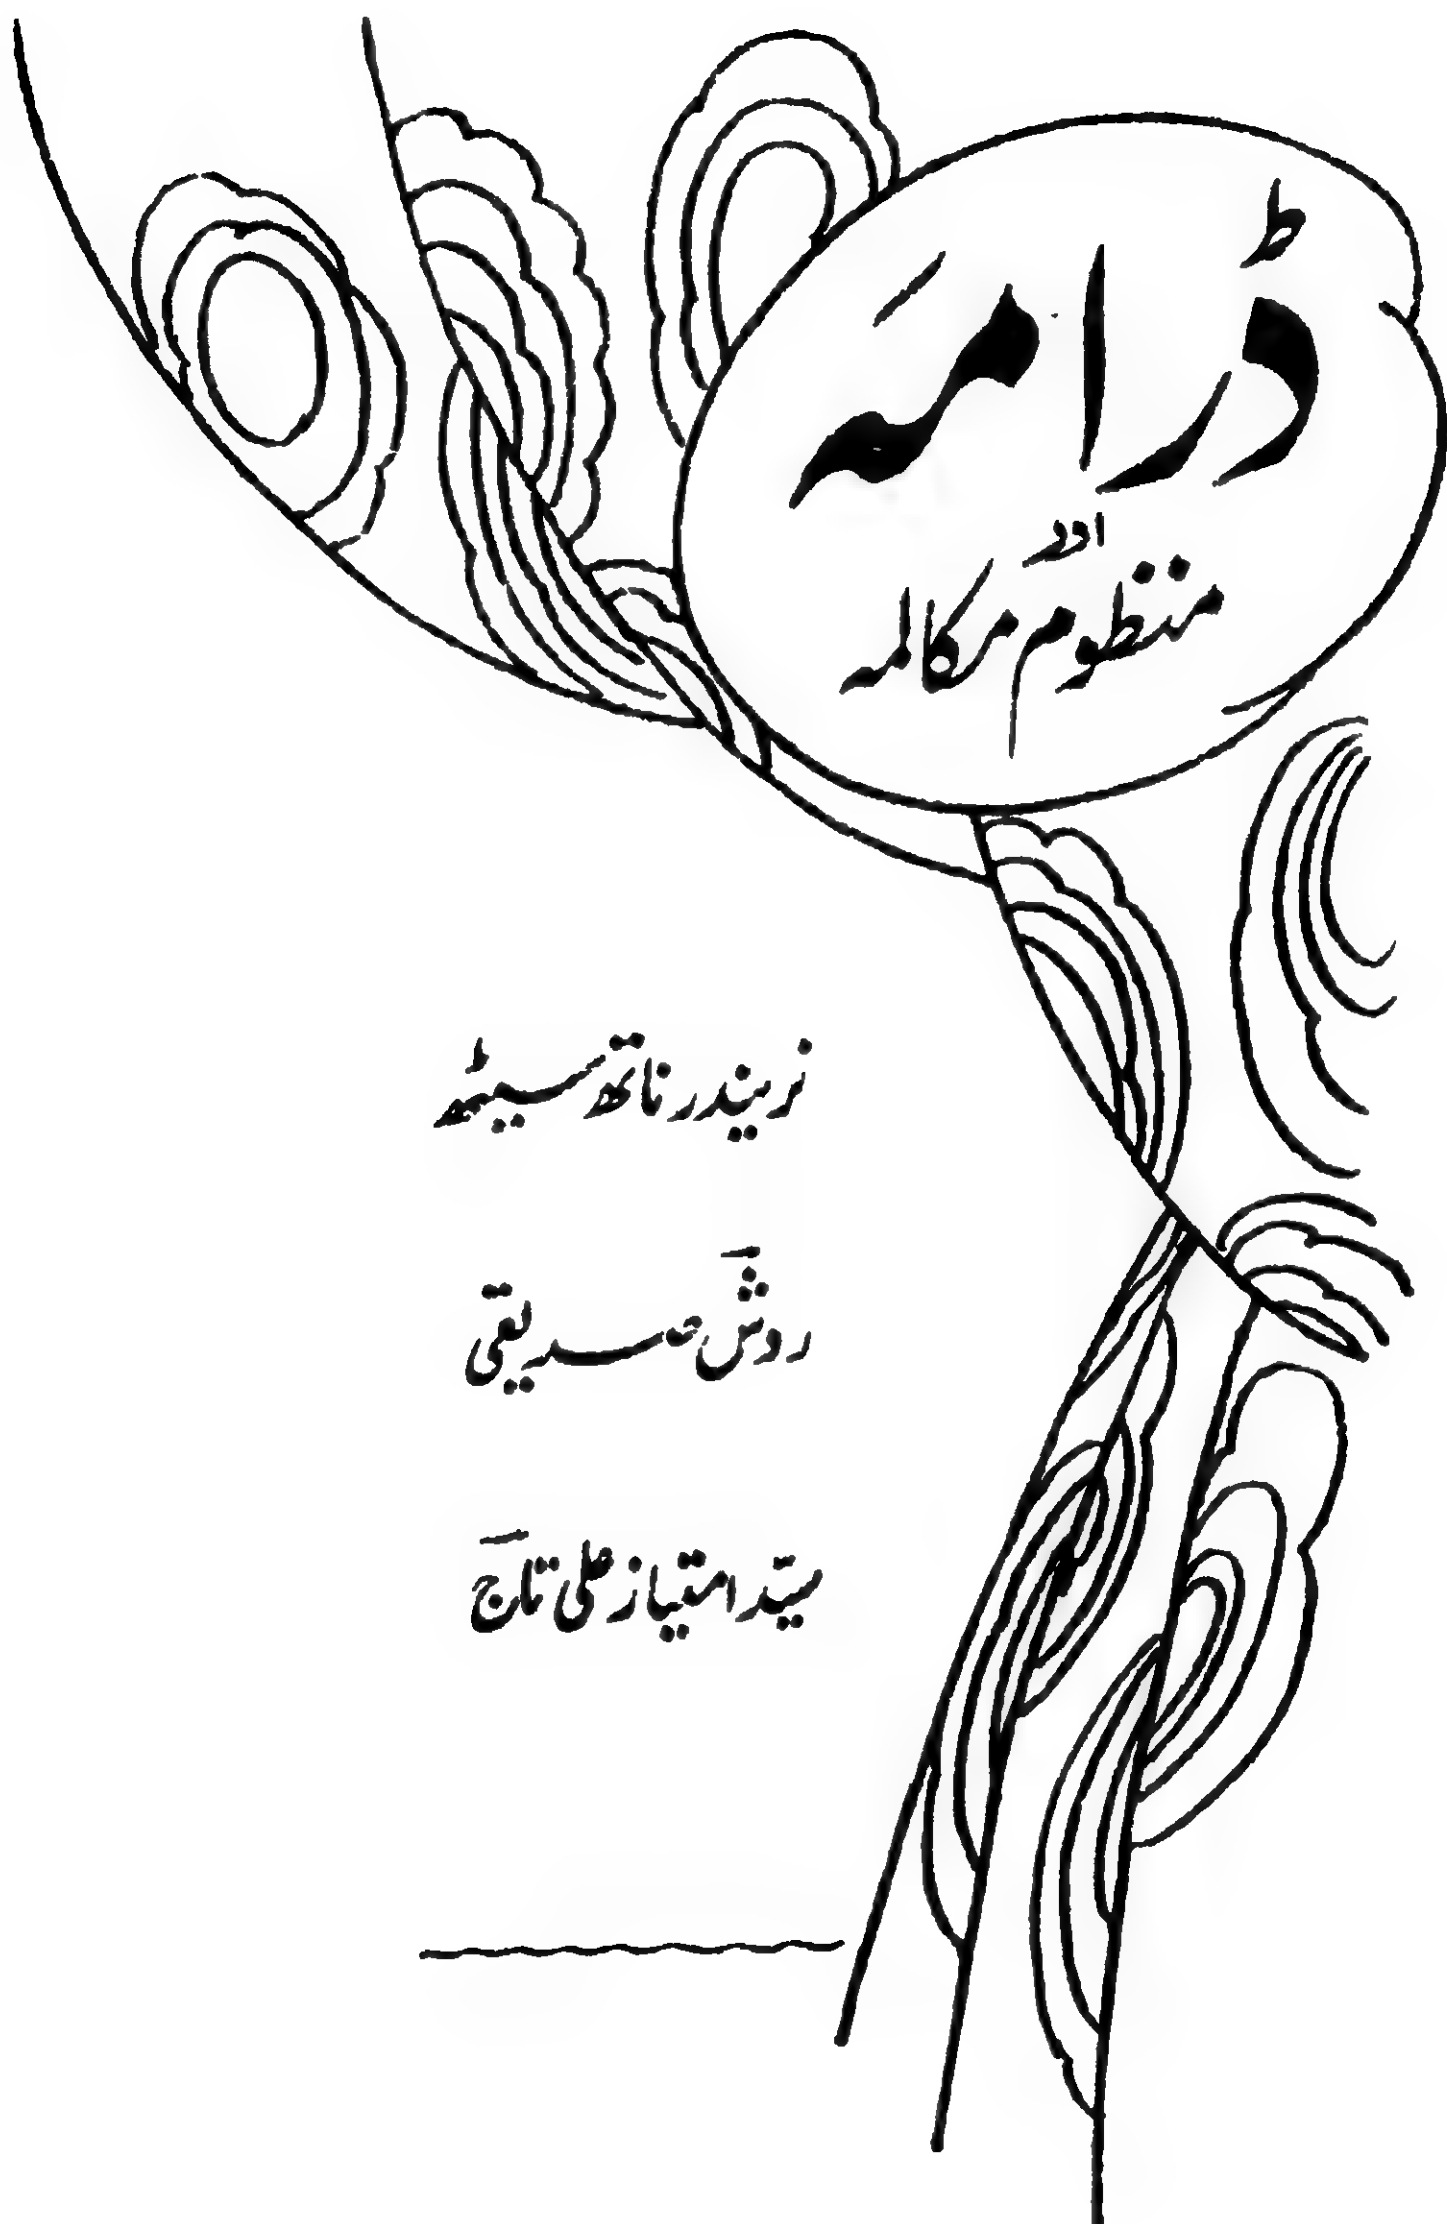 ڈرامہ
اور
منظوم مکالمہ
نریندر ناتھ سیٹھ
روشؔ صدیقی
سیّد امتیاز علی تاجؔ